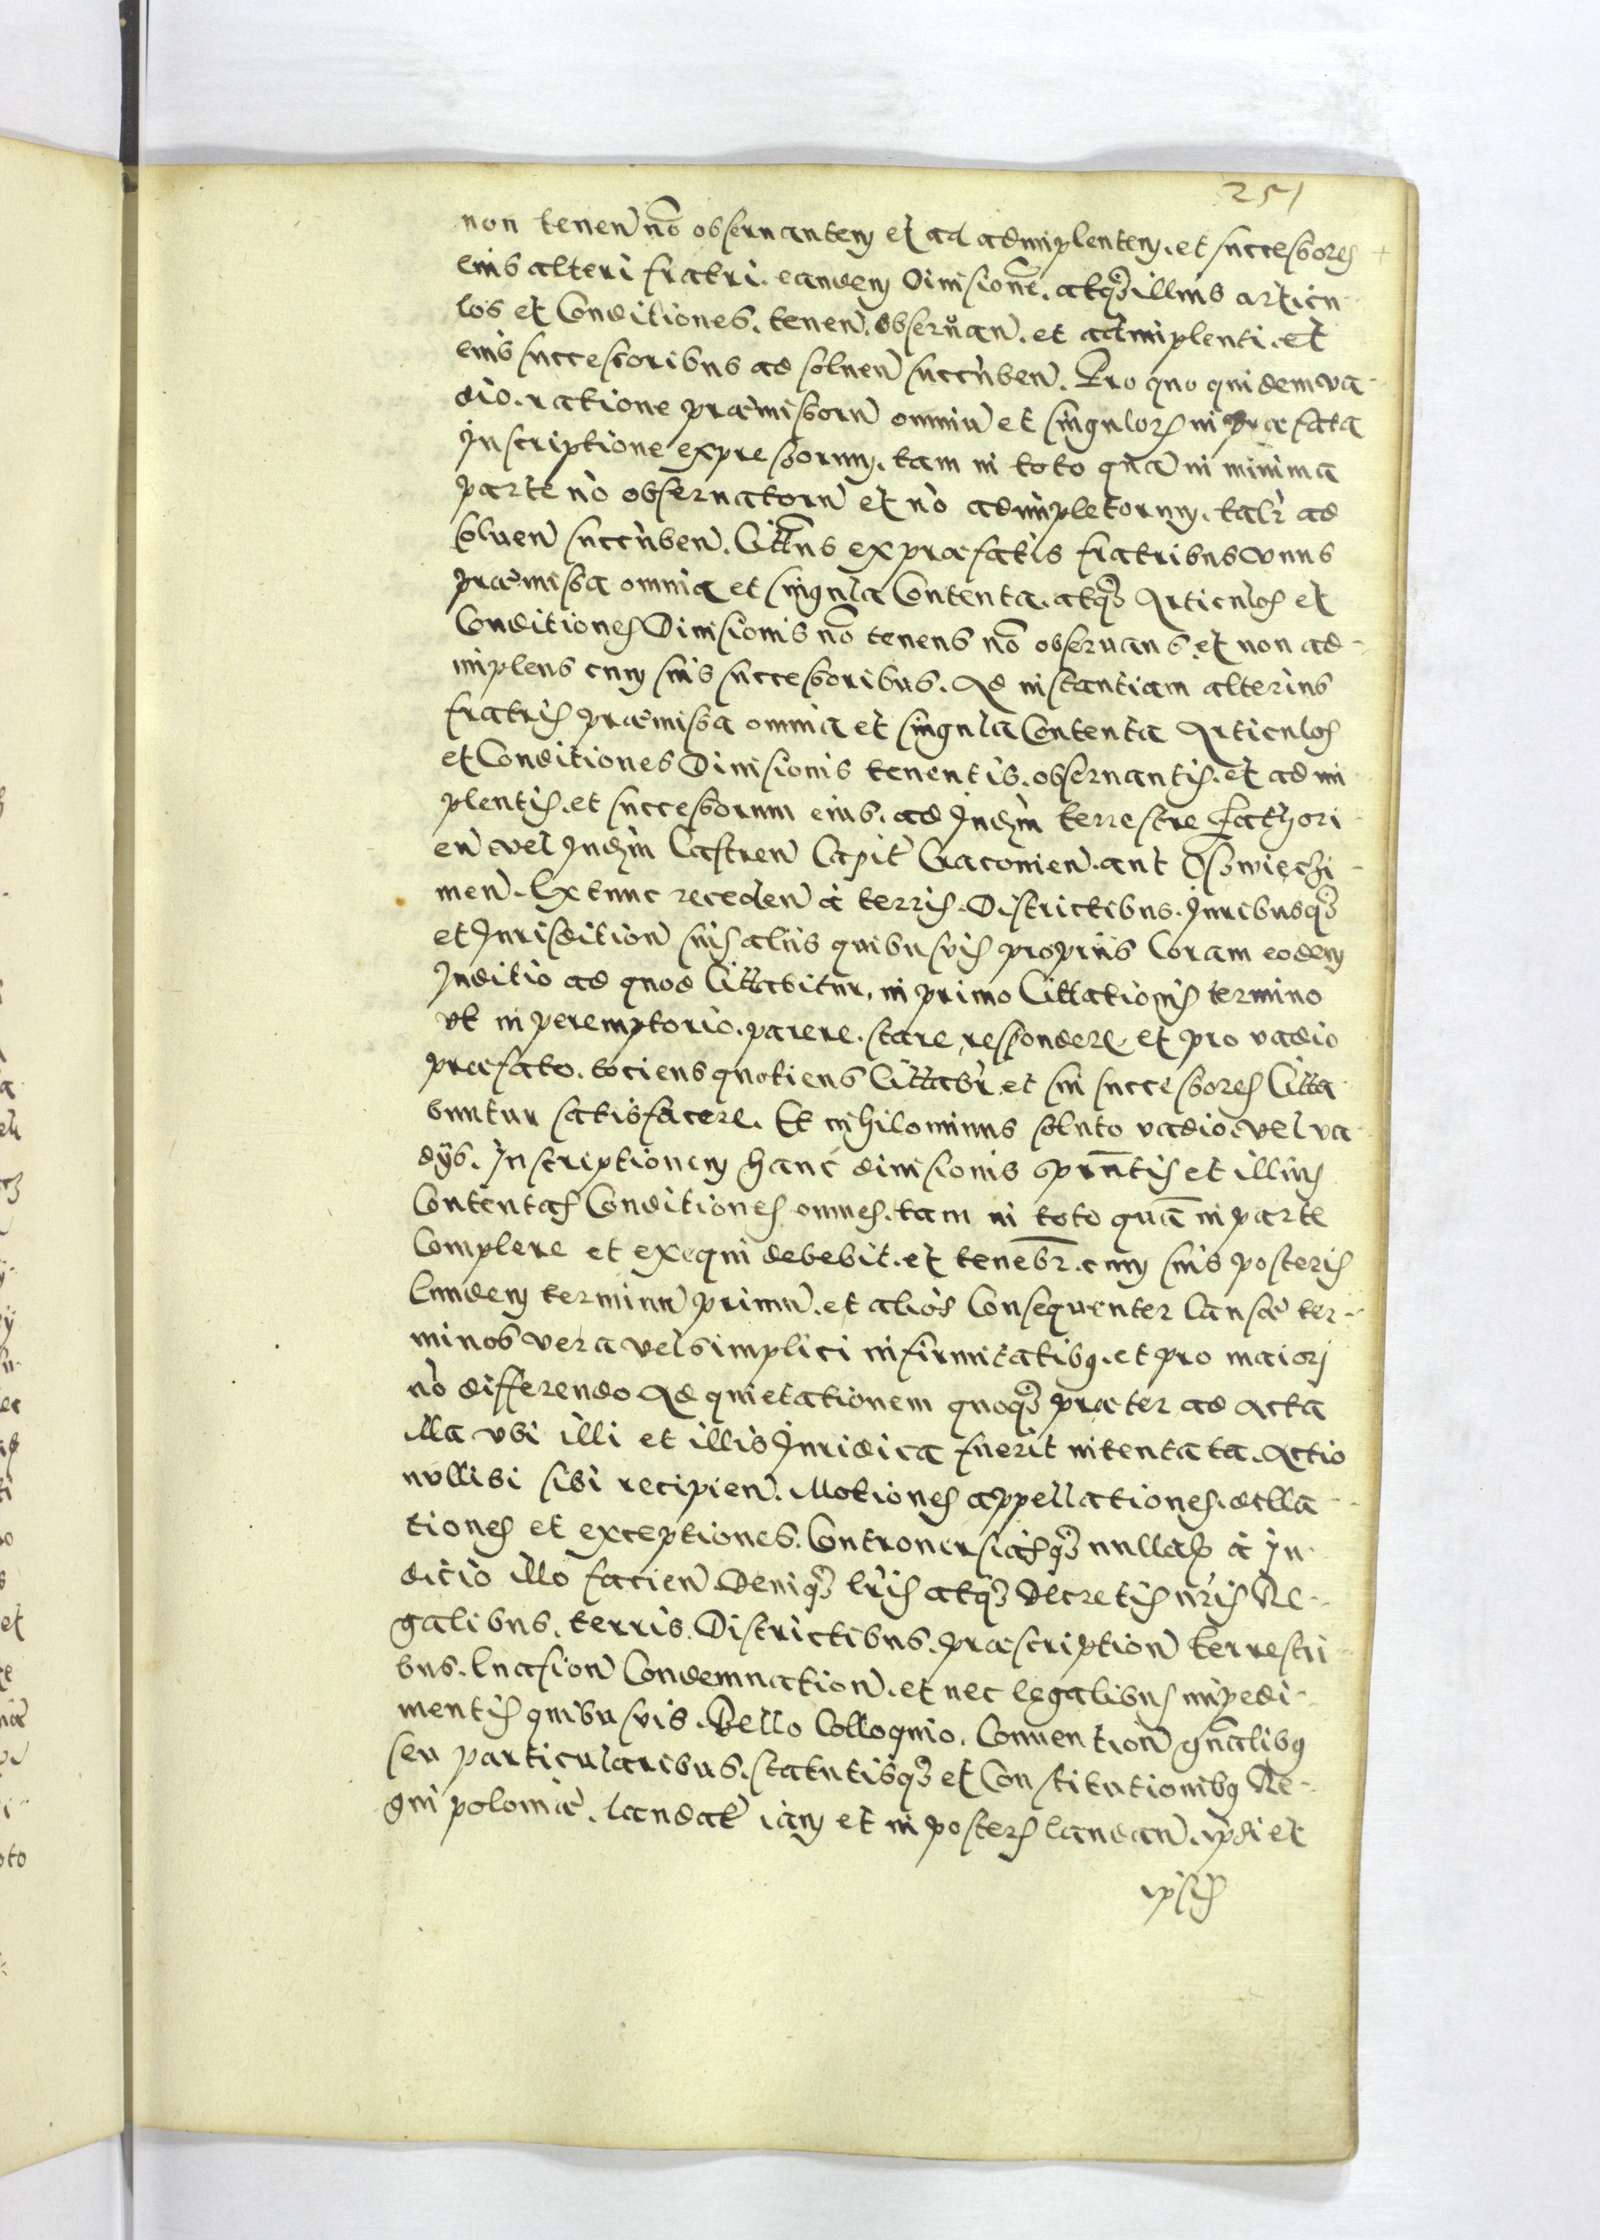 251
non tenen̄ nō obseruantem et ad adimplentem. et successores
eius alteri fratri. eandem Diuisionē. atq₃ illius articu-
los et Conditiones. tenen̄. obseruan̄. et adimplenti. et
eius successoribus ad soluen̄ succūben̄. Pro quo quidem va-
dio. ratione præmissorū omniū et singulor̃ in præfata
Inscriptione expressorum. tam in toto quā in minima
parte nō obseruatorū et nō adimpletorum. talr̄ ad
soluen̄ succūben̄. Cittatus ex præfatis fratribus vnus
præmissa omnia et singula Contenta. atq₃ Articulos et
Conditiones Diuisionis nō tenens nō obseruans et non ad-
implens cum suis successoribus. Ad instantiam alterius
fratris præmissa omnia et singula Contenta Articulos
et Conditiones Diuisionis tenentis. obseruantis. et adim-
plentis. et successorum eius. ad Iudm̄ terrestre Zathori-
en̄ vel Iudm̄ Castren̄ Capit̄ Cracouien̄. aut Oswięczi-
men̄. Ex tunc receden̄ à terris. Districtibus. Iuribusq₃
et Iurisdition̄ suis aliis quibusuis propriis Coram eodem
Iuditio ad quod Cittabitur, in primo Cittationis termino
vt in peremptorio. parere. stare, respondere et pro vadio
præfato. tociens quotiens Cittabr̄ et sui successores Citta-
buntur satisfacere. Et nihilominus soluto vadio. vel va-
dÿs. Inscriptionem hanc diuisionis pn̄tis et illius
Contentas Conditiones omnes. tam in toto quā in parte
Complere et exequi debebit. et tenebr̄. cum suis posteris
Eundem terminū primū. et alios Consequenter Causæ ter-
minos vera vel simplici infirmitatibꝫ. et pro maiori
nō differendo Ad quietationem quoq₃ præter ad Acta
illa vbi illi et illis Iuridica fuerit intentata. Actio
nullibi sibi recipien̄. Motiones appellationes. dilla-
tiones et exceptiones. Controuersiasq₃ nullas à Iu-
ditio illo facien̄ Deniq₃ lr̄is atq₃ decretis nr̄is Re-
galibus. terris. Districtibus. præscription̄ terrestri-
bus. Euasion̄ Condemnation̄. et nec legalibus impedi-
mentis quibusuis. Bello Colloquio. Conuention̄ gn̄alibꝫ
seu particularibus. statutisq₃ et Constitutionibꝫ Re-
gni poloniæ. laudat̄ iam et in posterū laudan̄. ipsi et
ipsis